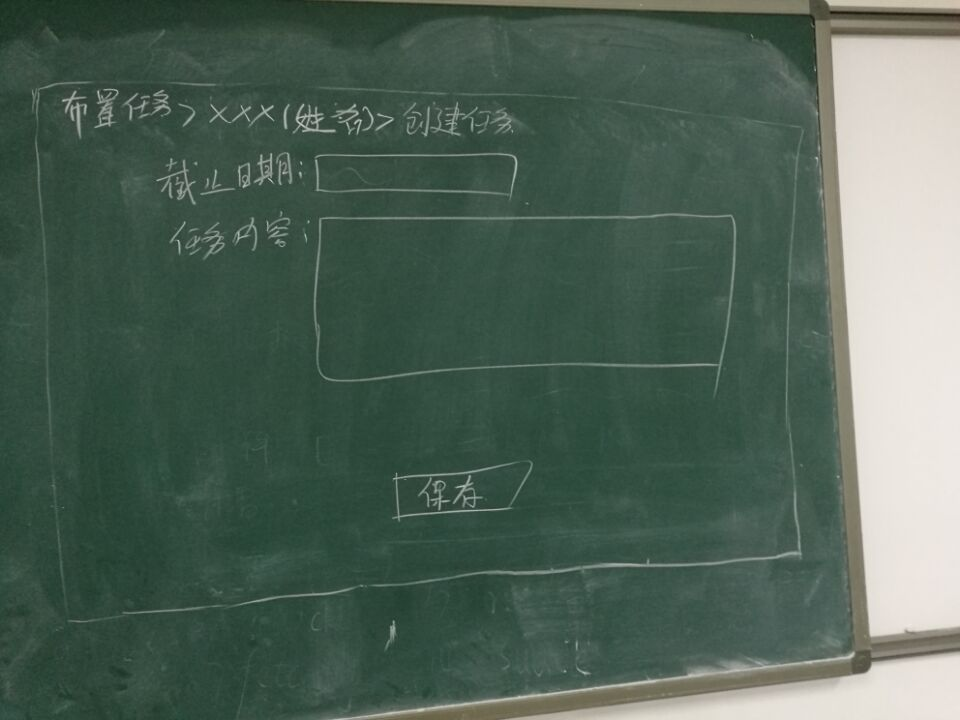 布置任务>XXX(姓名)>创建任务
截止日期:
任务内容:
保存